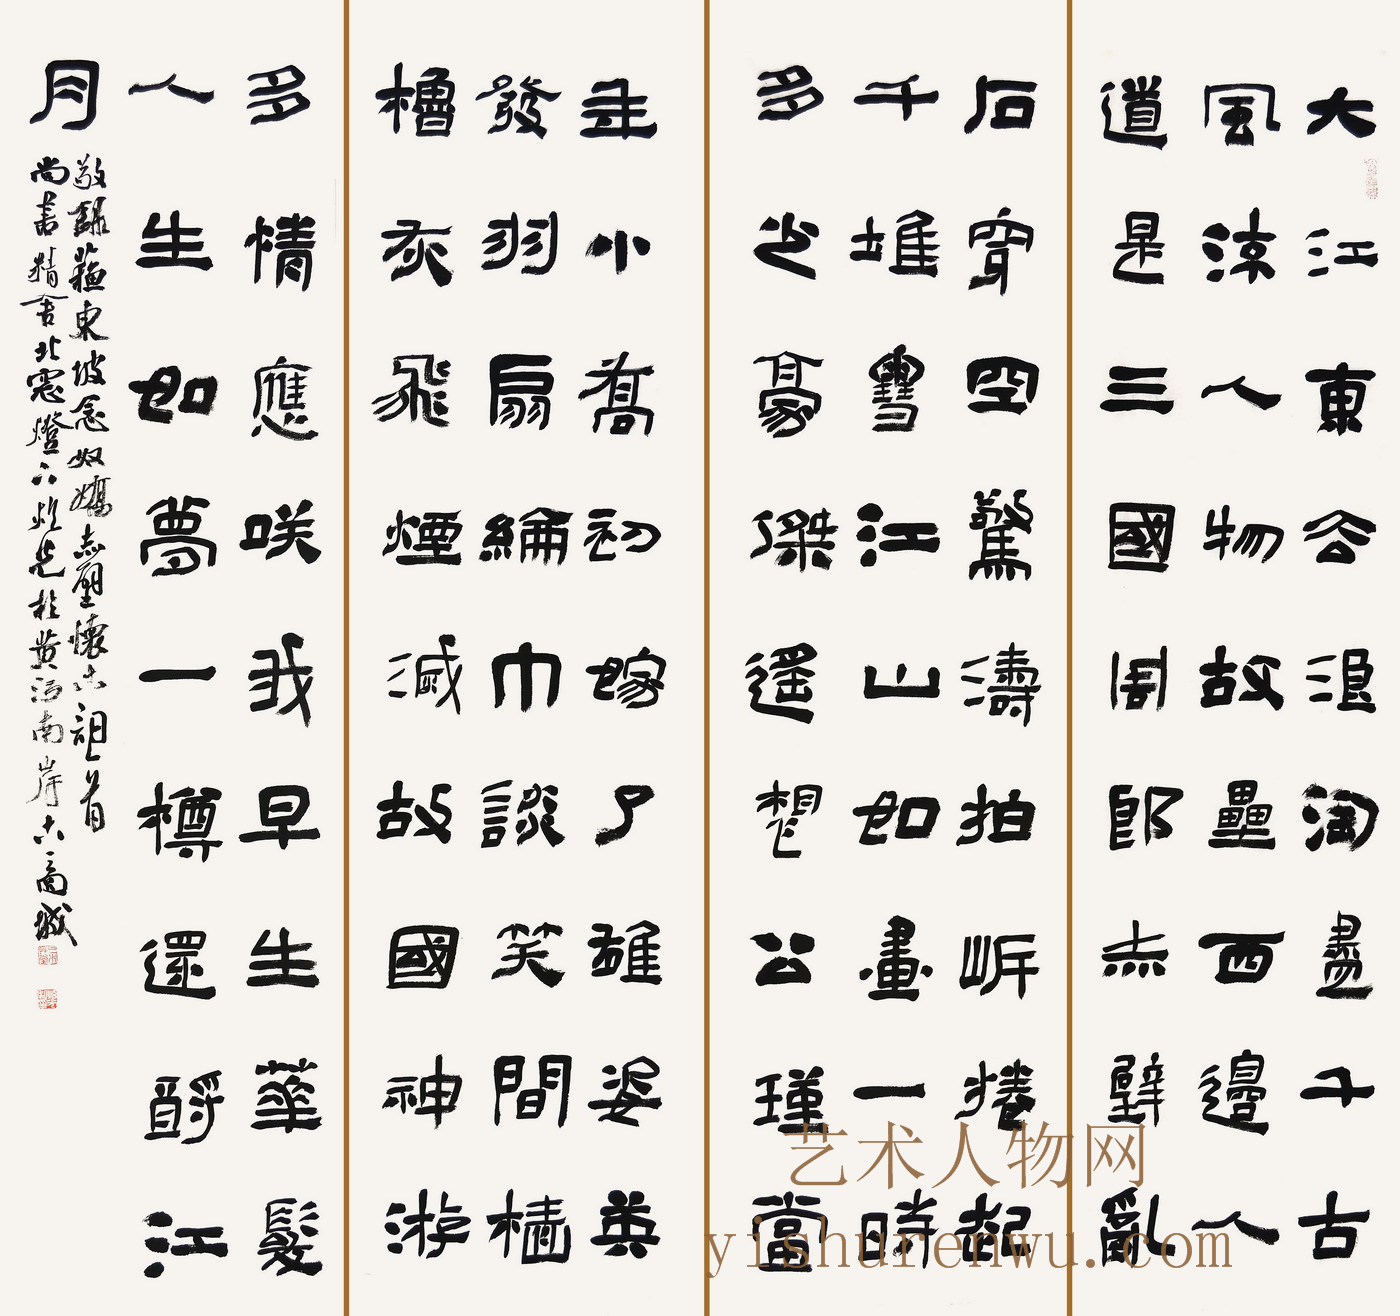 大江東去浪淘盡千古
風流人物故壘西邊人
道是三國周郎赤壁亂
石穿空驚濤拍岸捲起
千堆雪江山如畫一時
多少豪傑遥想公瑾當
年小喬初嫁了雄姿英
發羽扇綸巾談笑間檣
櫓灰飛煙滅故國神游
多情應咲我早生華髮
人生如夢一樽還酹江
月
敬録蘇東坡念奴嬌赤壁懷古詞一首
尚書精舍北窗燈下於黄河南岸古商城
艺术人物网
yishurenwu.com